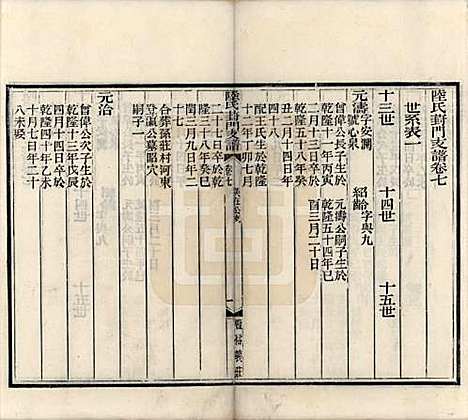 陸氏葑門支譜卷七
世系表一
十三世 十四世 十五世
元濤 字安瀾 紹齡 字與九
號心泉
曾偉公長子生於 元濤公嗣子生於
乾隆十一年丙寅 乾隆五十四年己
二月十三日卒於 酉三月二十日
乾隆五十八年癸
丑二月十四日年
四十八
配王氏生於乾隆
十二年丁卯七月
二十七日卒於乾
隆三十八年癸巳
閏三月九日年二
十七
合葬蔡莊村河東
登瀛公墓昭穴
嗣子一
元治
曾偉公次子生於
乾隆十三年戊辰
四月十四日卒於
乾隆四十年乙未
十月七日年二十
八未娶
陸氏葑門支譜
卷七
世系表
一